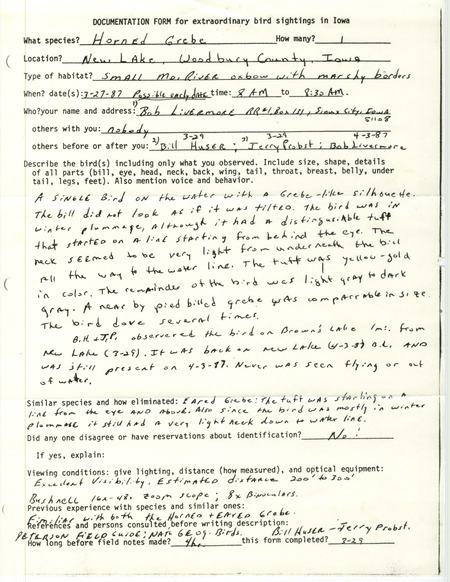 DOCUMENTATION FORM for extraordinary bird sightings in Iowa
What species? Horned Grebe How many? 1
Location? New Lake, Woodbury County, Iowa
Type of habitat? Small Mo. River oxbow with marshy borders
When? date(s): 3-27-87 Possible early date time: 8 AM to 8:30 AM.
Who? your name and address: 1) Bob Livermore RR#1, Box 181, Sioux City, Iowa
51108
others with you: nobody
3-29 3-29 4-3-87
others before or after you: 2) Bill Huser; 3) Jerry Probst; Bob Livermore
Describe the bird(s) including only what you observed. Include size, shape, details
of all parts (bill, eye, head, neck, back, wing, tail, throat, breast, belly, under
tail, legs, feet). Also mention voice and behavior.
A single Bird on the water with a Grebe-like silhouette.
The bill did not look as if it was tilted. The bird was in
winter plommage, although it had a distinguishable tuft
that started on a line starting from behind the eye. The
neck seemed to be very light from underneath the bill
all the way to the water line. The tuft was yellow-gold
in color. The remainder of the bird was light gray to dark
gray. A near by pied billed grebe was comparable in size.
The bird dove several times.
B.H. & J.P. observered the bird on Brown's Lake 1 mi. from
New Lake (3-29). It was back on new Lake (4-3-87) B.L. AND
was still present on 4-3-87. Never was seen flying or out
of water.
Similar species and how eliminated: Eared Grebe: The tuft was starting on a
line from the eye AND Above. Also since the bird was mostly in winter
plommage it still had a very light neck down to water line.
Did any one disagree or have reservations about identification? No!
If yes, explain:
Viewing conditions: give lighting, distance (how measured), and optical equipment:
Excellent Visibility. Estimated distance 200' to 300'
Bushnell 16x-48x zoom scope; 8x Binoculars.
Previous experience with species and similar ones:
Fimiliar with both the Horned & EARED Grebe.
References and persons consulted before writing description: Bill Huser - Jerry Probst.
PETERSON FIELD GUIDE; NAT. GEOG. Birds.
How long before field notes made? 4 hr. this form completed? 3-29